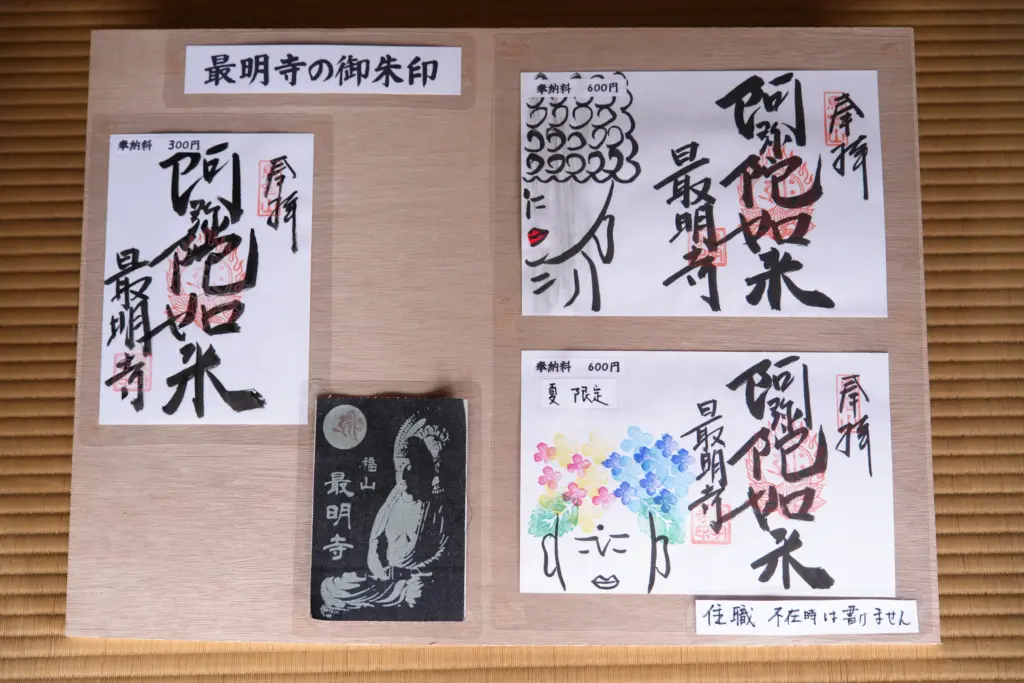 最明寺の御朱印
奉納料 300円
奉拝
阿弥陀如来
最明寺
福山
最明寺
奉納料 600円
奉拝
阿弥陀如来
最明寺
奉納料 600円
夏 限定
奉拝
阿弥陀如来
最明寺
住職 不在時は書けません